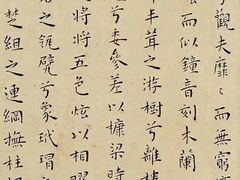 兮觀夫靡〻而無窮
吰而似鐘音刻木蘭
丰茸之游樹兮離樓
兮委參差以槺梁時
將將五色炫以相曜
之瓴甓兮象玳瑁
楚組之連綱撫柱